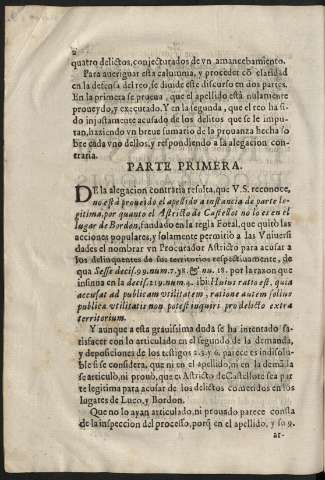 2
quatro delictos, conjecturados de vn amancebamiento.
Para aueriguar esta calumnia, y proceder cõ claridad
en la defensa del reo, se diuide este discurso en dos partes.
En la primera se prueua, que el apellido està nulamente
proueydo, y executado. Y en la segunda, que el reo ha si-
do injustamente acusado de los delitos que se le impu-
tan, haziendo vn breue sumario de la prouança hecha so
bre cada vno dellos, y respondiendo a la alegacion con-
traria.
PARTE PRIMERA.
DE la alegacion contraria resulta, que V.S. reconoce,
no està proueido el apellido a instancia de parte le-
gitima, por quanto el Astricto de Castellot no lo es en el
lugar de Bordon, fundado en la regla Foral, que quitò las
acciones populares, y solamente permitiò a las Vniuersi
dades el nombrar vn Procurador Astricto para acusar a
los delinquentes de sus territorios respectiuamente, de
qua Sesse decis. 99. num. 7. 38. & nu. 18. por la razon que
insinua en la decis. 219. num. 4. ibi: Huius ratio est, quia
accusat ad publicam vtilitatem, ratione autem solius
publica vtilitatis non potest inquiri pro delicto extra
territorium.
Y aunque a esta grauissima duda se ha intentado sa-
tisfacer con lo articulado en el segundo de la demanda,
y deposiciones de los testigos 2. 3. y 6. parece es indisolu-
ble si se considera, que ni en el apellido, ni en la demãda
se articulò, ni prouò, que el Astricto de Castellote sea par
te legitima para acusar de los delictos cometidos en los
lugares de Luco, y Bordon.
Que no lo ayan articulado, ni prouado parece consta
de la inspeccion del processo, porq̃ en el apellido, y su 9.
ar-